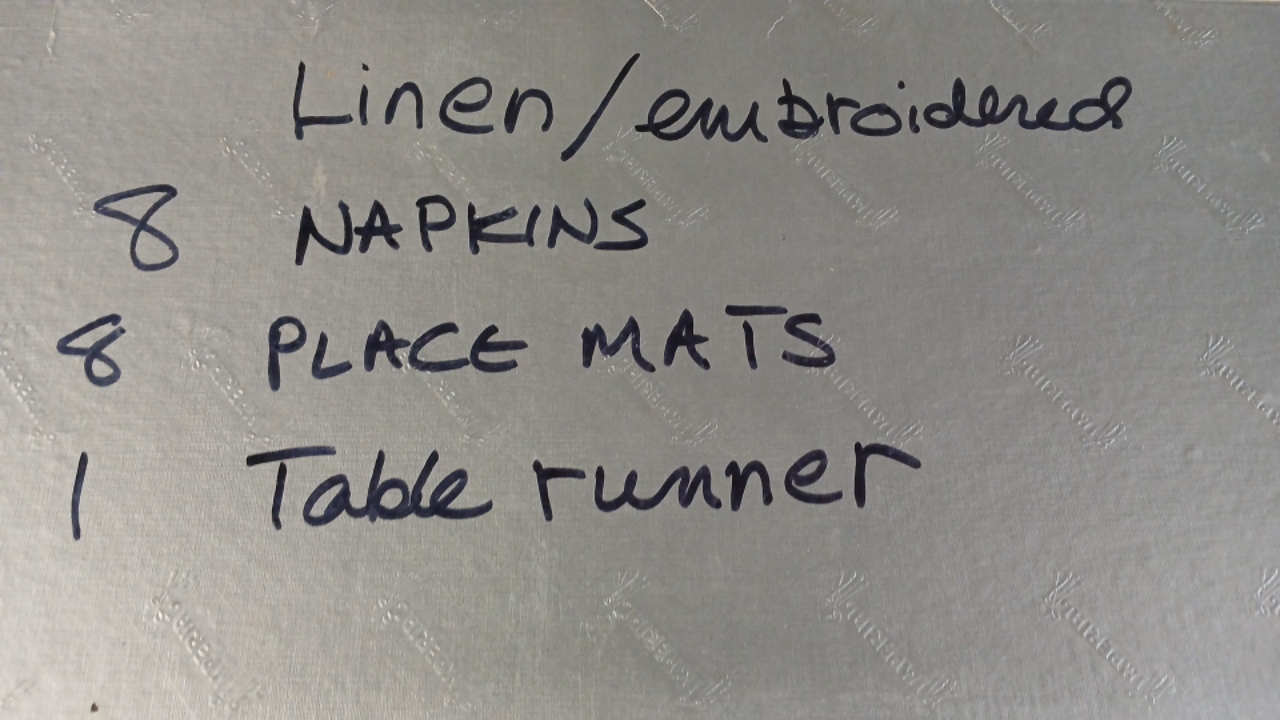 Linen/embroidered
8 NAPKINS
8 PLACE MATS
1 Table runner